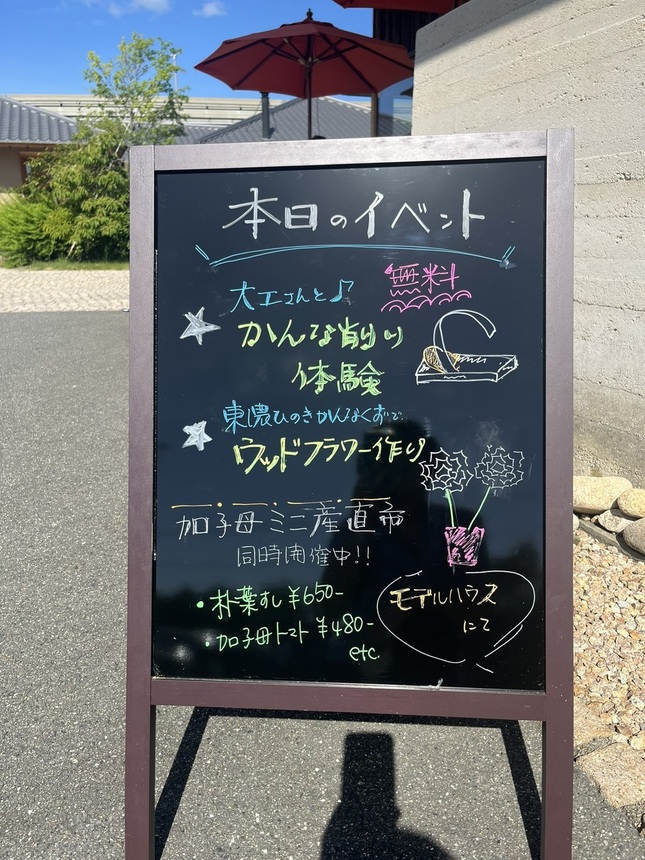 本日のイベント
無料
大工さんと♪
かんな削り
体験
東濃ひのきかんなくずで
ウッドフラワー作り
加子母ミニ産直市
同時開催中!!
・朴葉すし ¥650-
・加子母トマト ¥480-
etc.
モデルハウス
にて